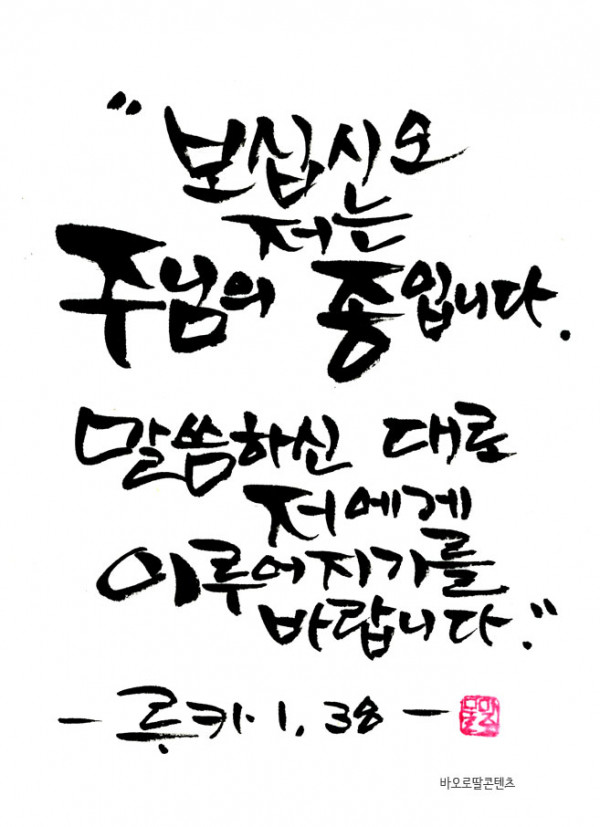 “보십시오
저는
주님의 종입니다.
말씀하신 대로
저에게
이루어지기를
바랍니다.”
- 루카 1, 38 -
바오로딸콘텐츠